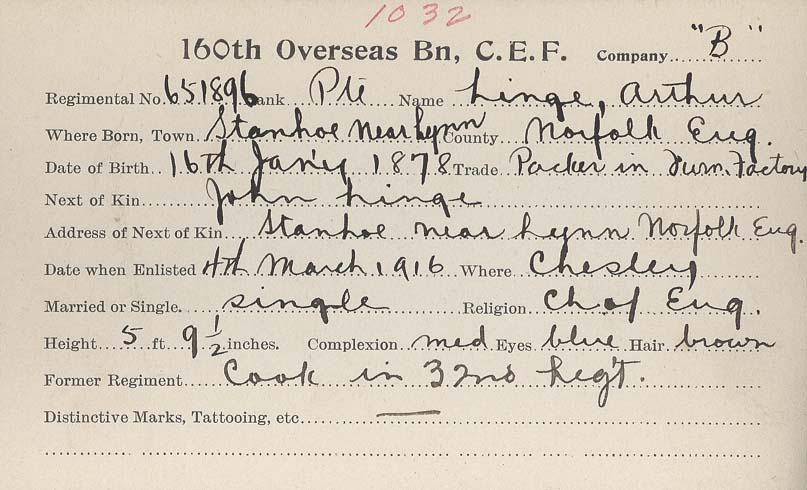 1032
160th Overseas Bn, C. E. F. Company "B"
Regimental No. 651896 Rank Pte Name Linge, Arthur
Where Born, Town Stanhoe Near Lynn County Norfolk Eng.
Date of Birth 16th Jan'y 1878 Trade Packer in Furn. Factory
Next of Kin John Linge
Address of Next of Kin Stanhoe near Lynn Norfolk Eng.
Date when Enlisted 4th March 1916 Where Chesley
Married or Single. single Religion Ch of Eng.
Height 5 ft 9 1/2 inches. Complexion med Eyes blue Hair brown
Former Regiment Cook in 32nd Reg't.
Distinctive Marks, Tattooing, etc. —